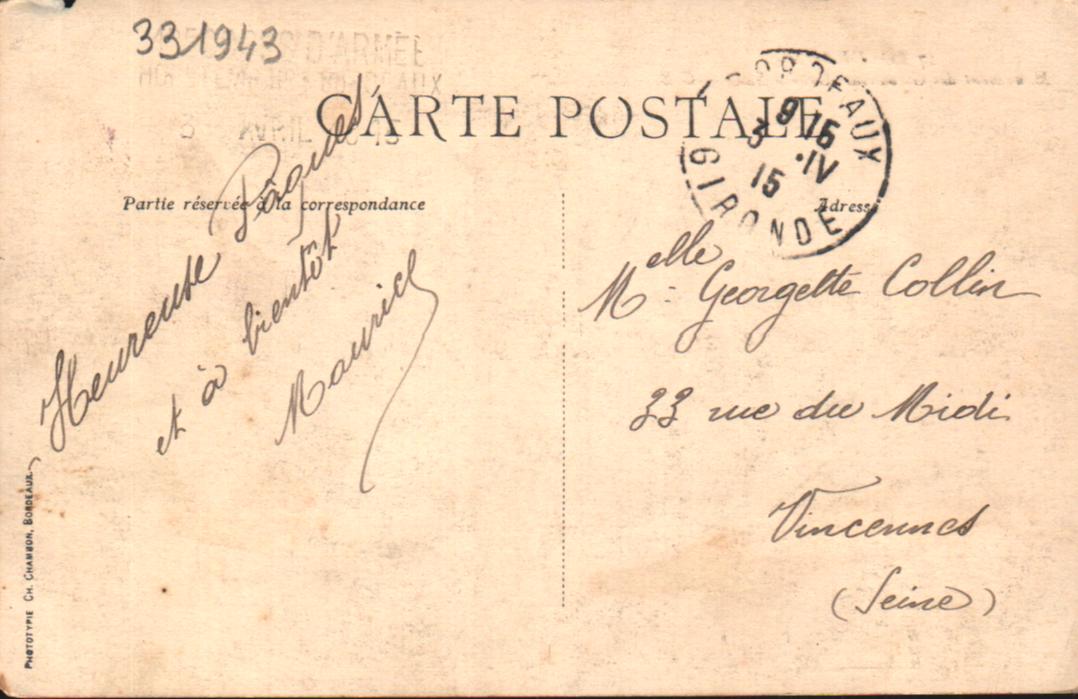 331943
D'ARMÉE
BORDEAUX
3 AVRIL 1915
CARTE POSTALE
BORDEAUX
9 15
3 ·IV
15
GIRONDE
Partie réservée à la correspondance
Adresse
Heureuse Pâques
et à bientôt
Maurice
Melle Georgette Collin
33 rue du Midi
Vincennes
(Seine)
PHOTOTYPIE CH. CHAMBON, BORDEAUX